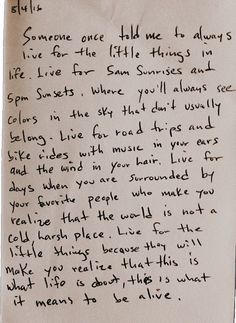 8/4/16
Someone once told me to always
live for the little things in
life. Live for 5am Sunrises and
5pm Sunsets. Where you'll always see
colors in the sky that don't usually
belong. Live for road trips and
bike rides with music in your ears
and the wind in your hair. Live for
days when you are surrounded by
your favorite people who make you
realize that the world is not a
cold harsh place. Live for the
little things because they will
make you realize that this is
what life is about, this is what
it means to be alive.